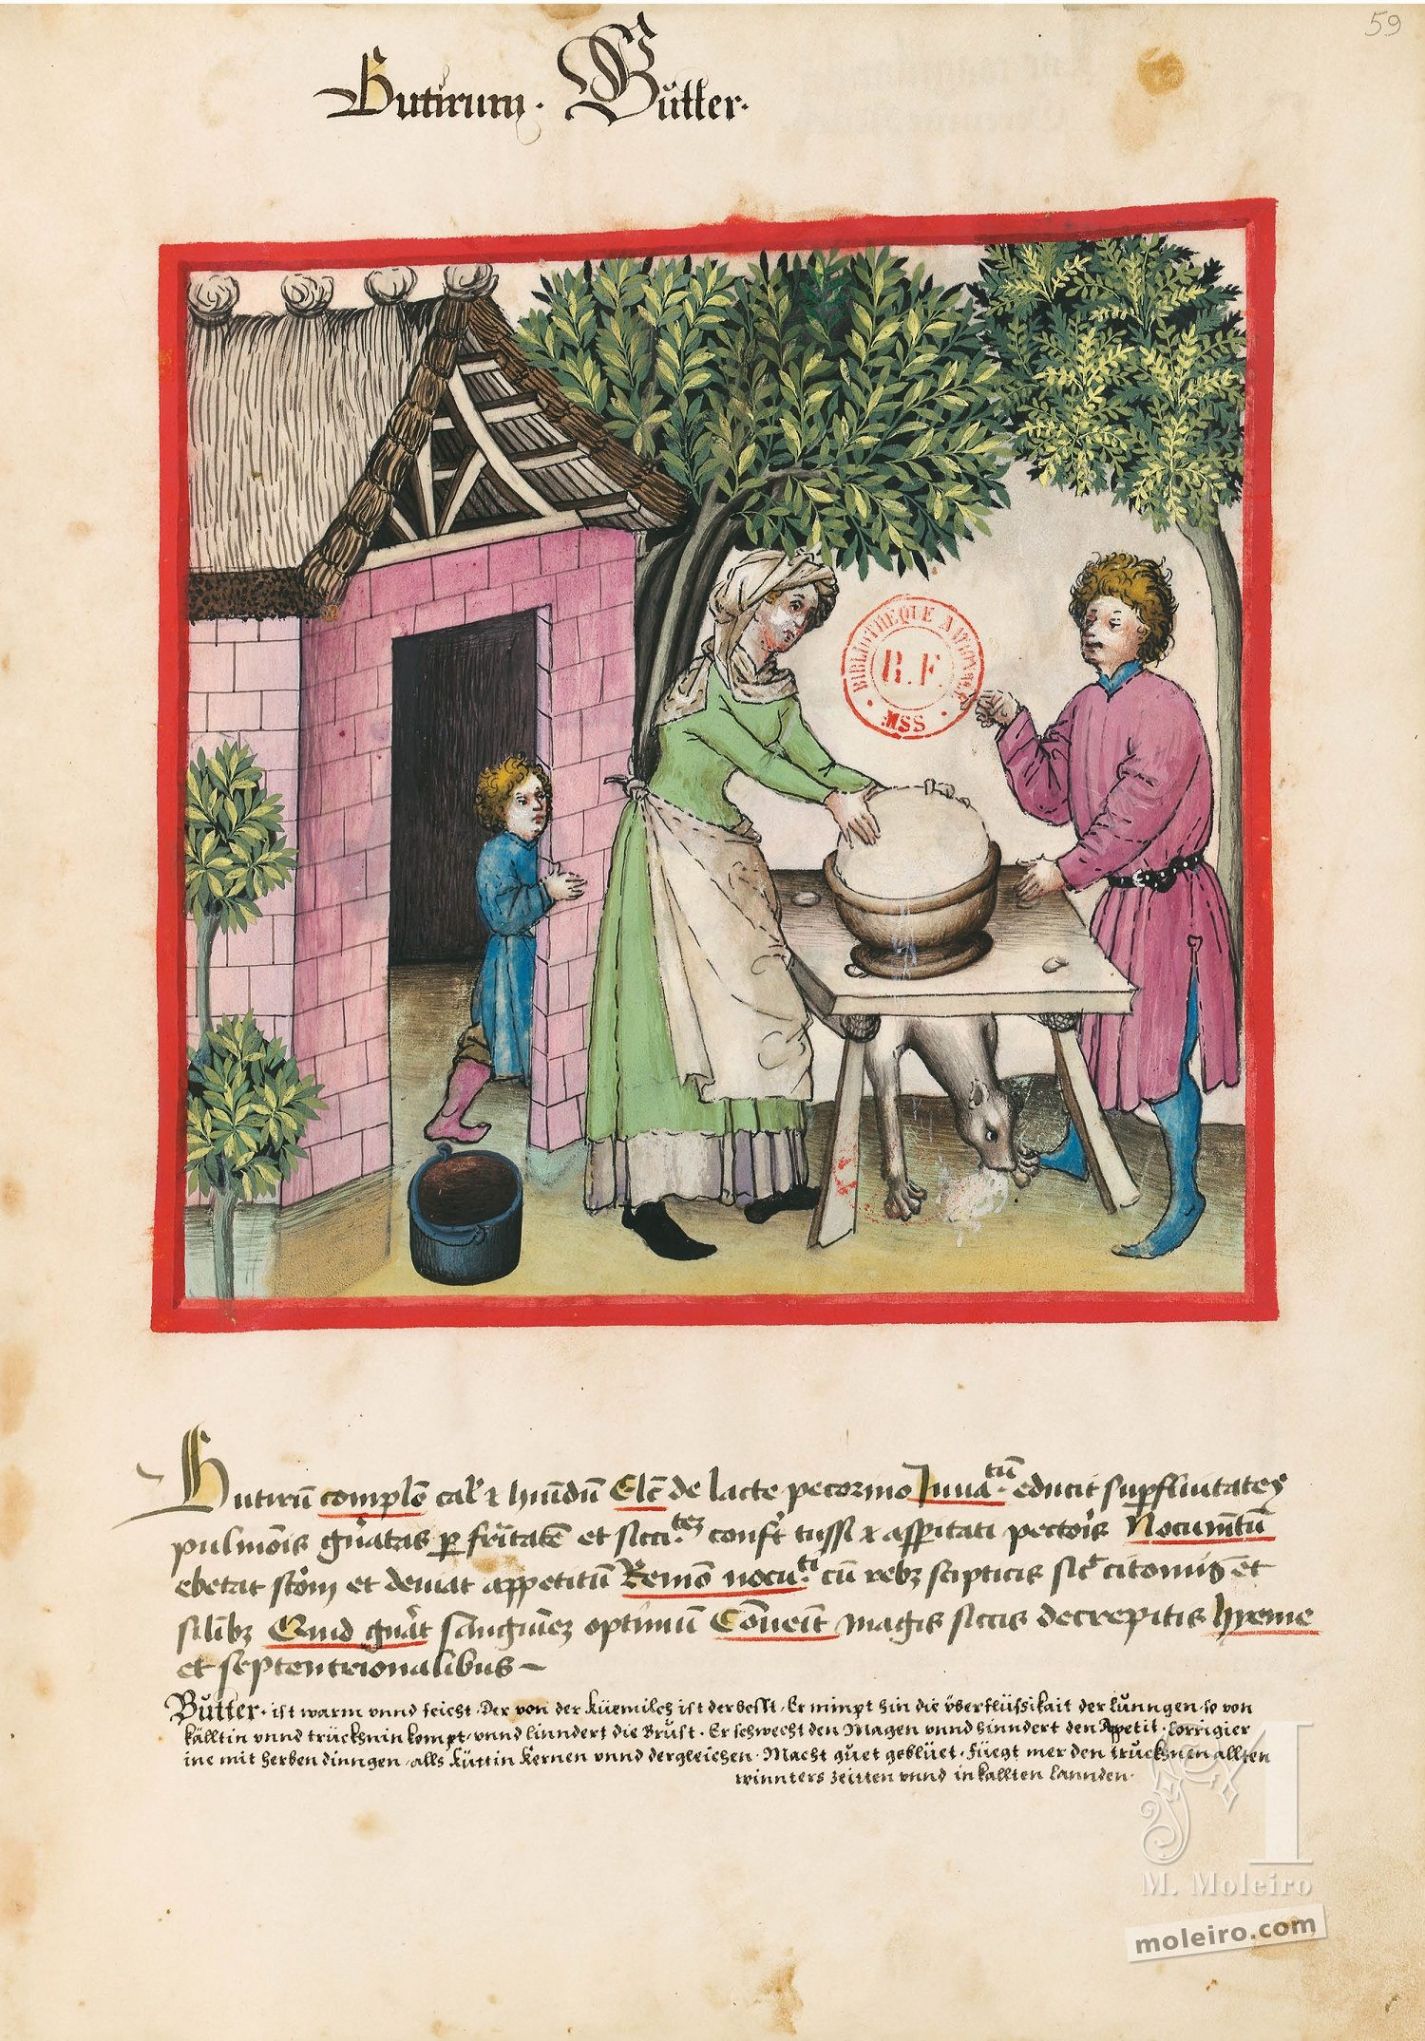 59
Butirum · Bůtter ·
BIBLIOTHEQUE NATIONALE
R.F.
MSS
Butirū complēo cal' ⁊ hūīdū Elc̄ de lacte pecorino Juuā.tū educit suꝑfluitates
pulmōis gn̄atas ꝑ fr̄itatē et sicci.tez confr̄t tussi ⁊ asꝑitati pectoris Nocumtū
ebetat stōm et deuiat appetitū Remō nocu.ti cū rebꝫ stipticis
Quid gn̄at sanguinez optimū Conueīt magis siccis decrepitis hyeme
et septentrionalibus
Bůtter · ist warm vnnd feicht · Der von der Küemilch ist der besst · Er nimpt hin die überflüssikait der Lunngen · so von
källtin vnnd trückhnin kompt · vnnd linndert die Brust · Er schwecht den Magen vnnd hinndert den Appetit · Corrigier
inc mit herben dinngen · alls Küttin Kernen vnnd dergleichen · Macht guet geblüet · Füegt mer den truckhnen allten
winnters zeitten vnnd in kallten Lannden ·
M. Moleiro
moleiro.com